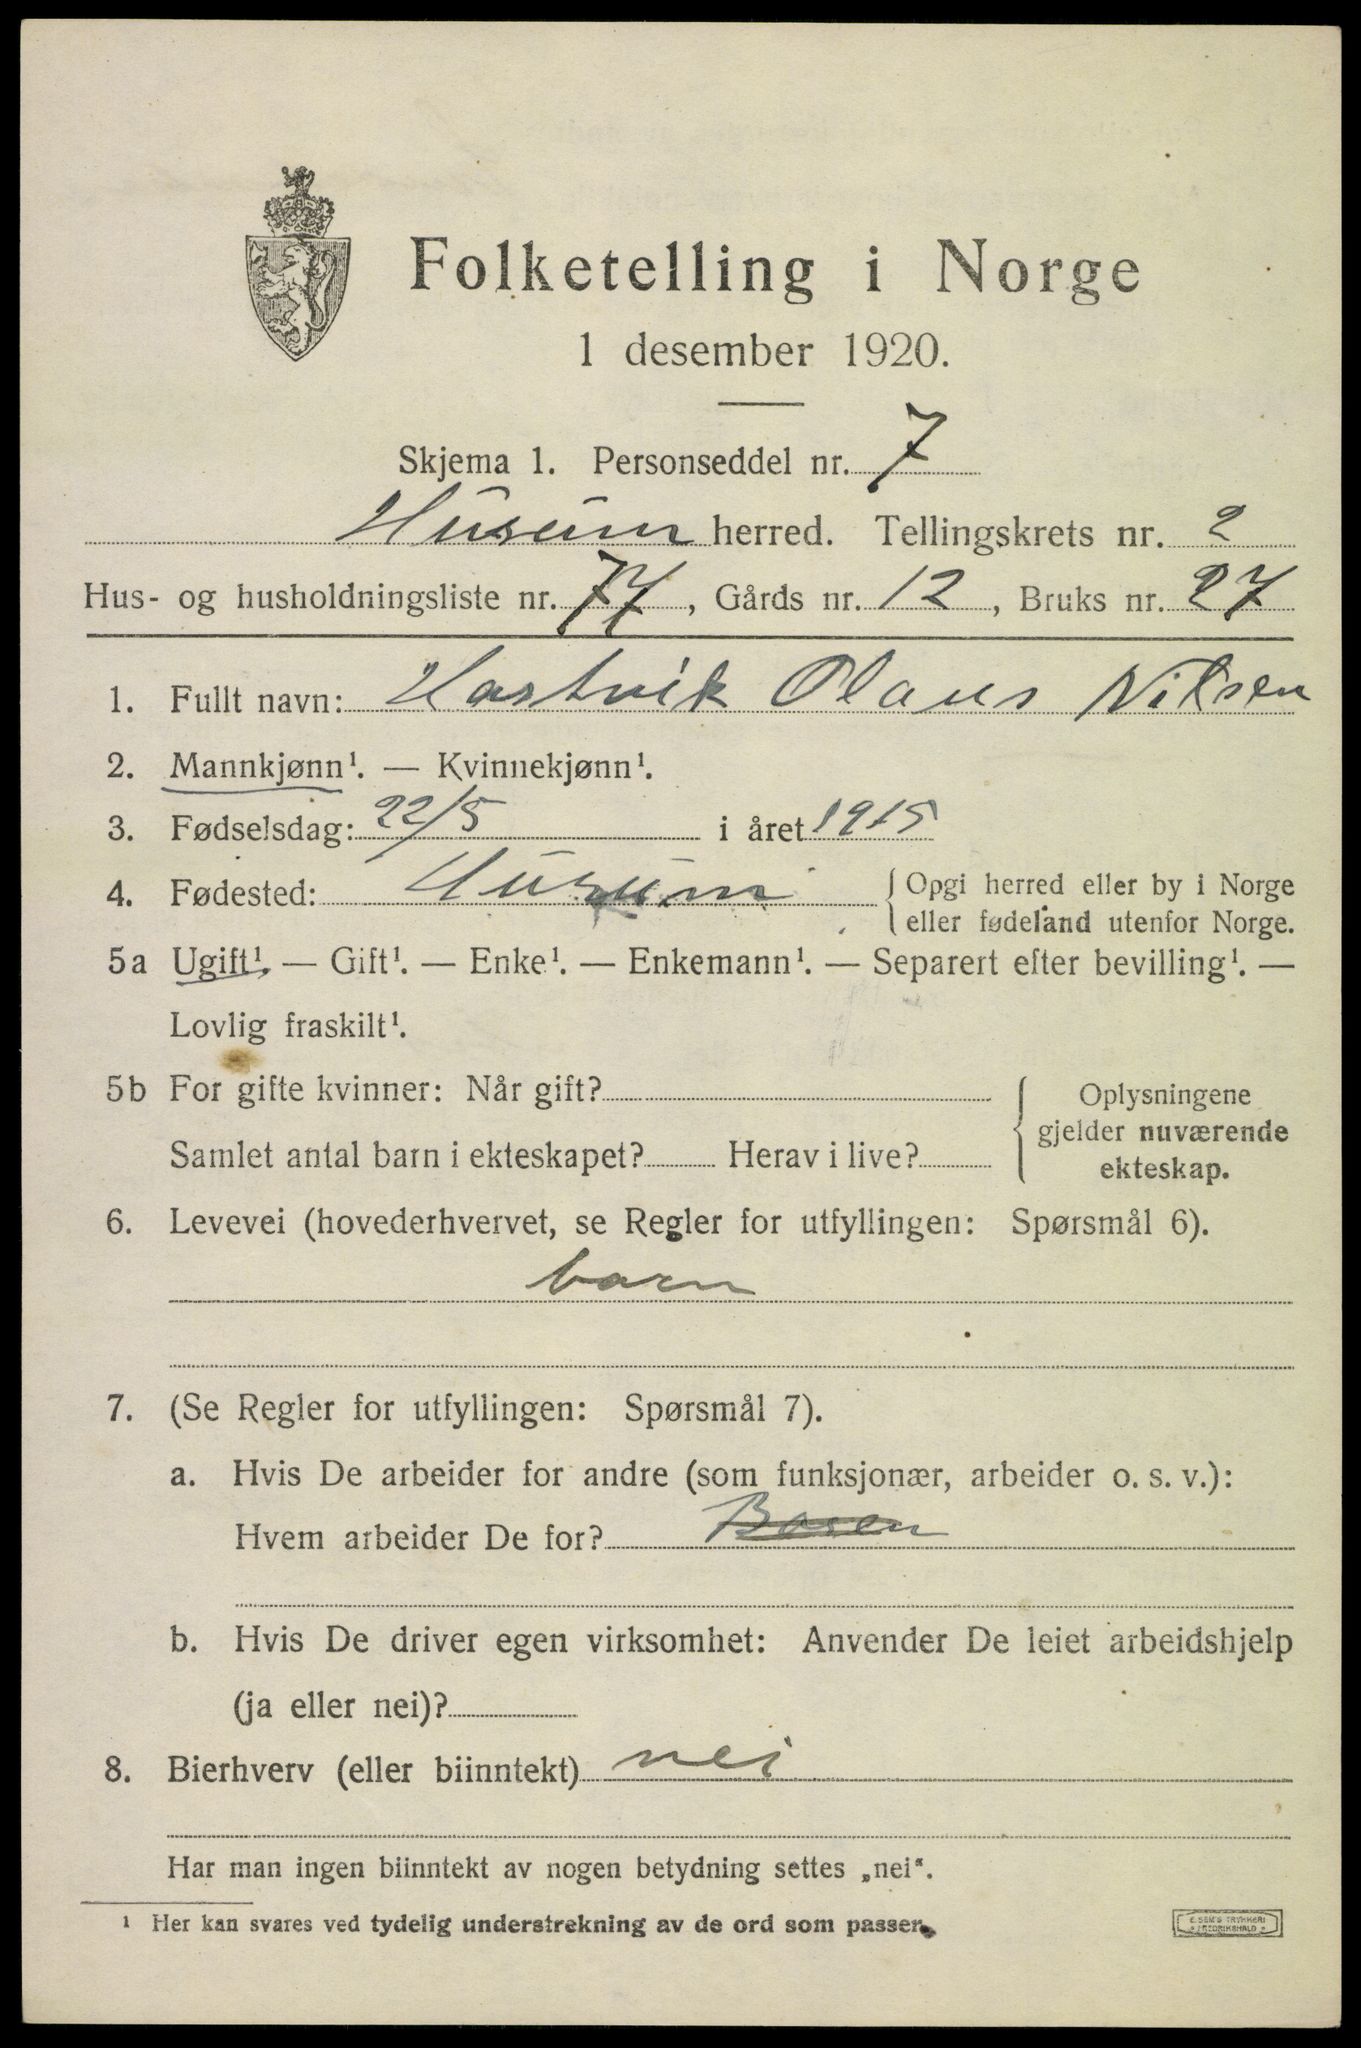 Folketelling i Norge
1 desember 1920.
Skjema 1. Personseddel nr. 7
Husum herred. Tellingskrets nr. 2
Hus- og husholdningsliste nr. 77, Gårds nr. 12, Bruks nr. 27
1. Fullt navn: Hartvik Olaus Nilsen
2. Mannkjønn¹. — Kvinnekjønn¹.
3. Fødselsdag: 22/5 i året 1915
4. Fødested: Husum { Opgi herred eller by i Norge
eller fødeland utenfor Norge.
5a Ugift¹. — Gift¹. — Enke¹. — Enkemann¹. — Separert efter bevilling¹. —
Lovlig fraskilt¹.
5b For gifte kvinner: Når gift?
Samlet antal barn i ekteskapet? Herav i live?
{ Oplysningene
gjelder nuværende
ekteskap.
6. Levevei (hovederhvervet, se Regler for utfyllingen: Spørsmål 6).
barn
7. (Se Regler for utfyllingen: Spørsmål 7).
a. Hvis De arbeider for andre (som funksjonær, arbeider o. s. v.):
Hvem arbeider De for?
b. Hvis De driver egen virksomhet: Anvender De leiet arbeidshjelp
(ja eller nei)?
8. Bierhverv (eller biinntekt) nei
Har man ingen biinntekt av nogen betydning settes „nei“.
¹ Her kan svares ved tydelig understrekning av de ord som passer.
E. SEM'S TRYKKERI
FREDRIKSHALD